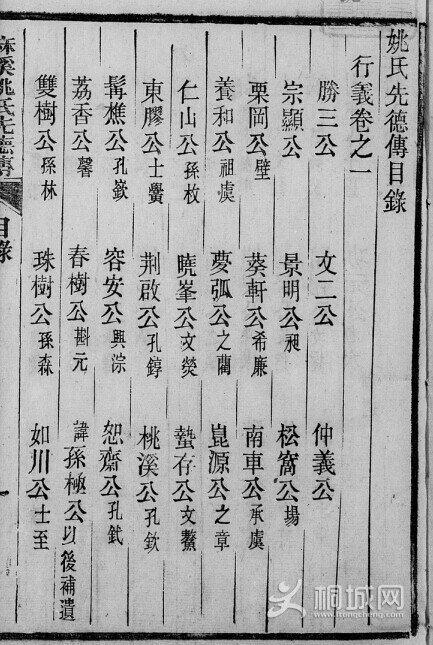 姚氏先德傳目錄
行義卷之一
勝三公 文二公 仲義公
宗顯公 景明公昶 松窩公揚
栗岡公壁 葵軒公希廉 南車公承虞
養和公祖虞 夢弧公之蘭 崑源公之章
仁山公孫枚 曉峯公文熒 蟄存公文鰲
東膠公士黌 荆啟公孔錞 桃溪公孔欽
髯樵公孔嶔 容安公興淙 恕齋公孔鉽
荔香公馨 春樹公斟元 諱孫極公以後補遺
雙樹公孫林 珠樹公孫森 如川公士至
麻溪姚氏先德傳
目錄
一
桐城网
itongcheng.com